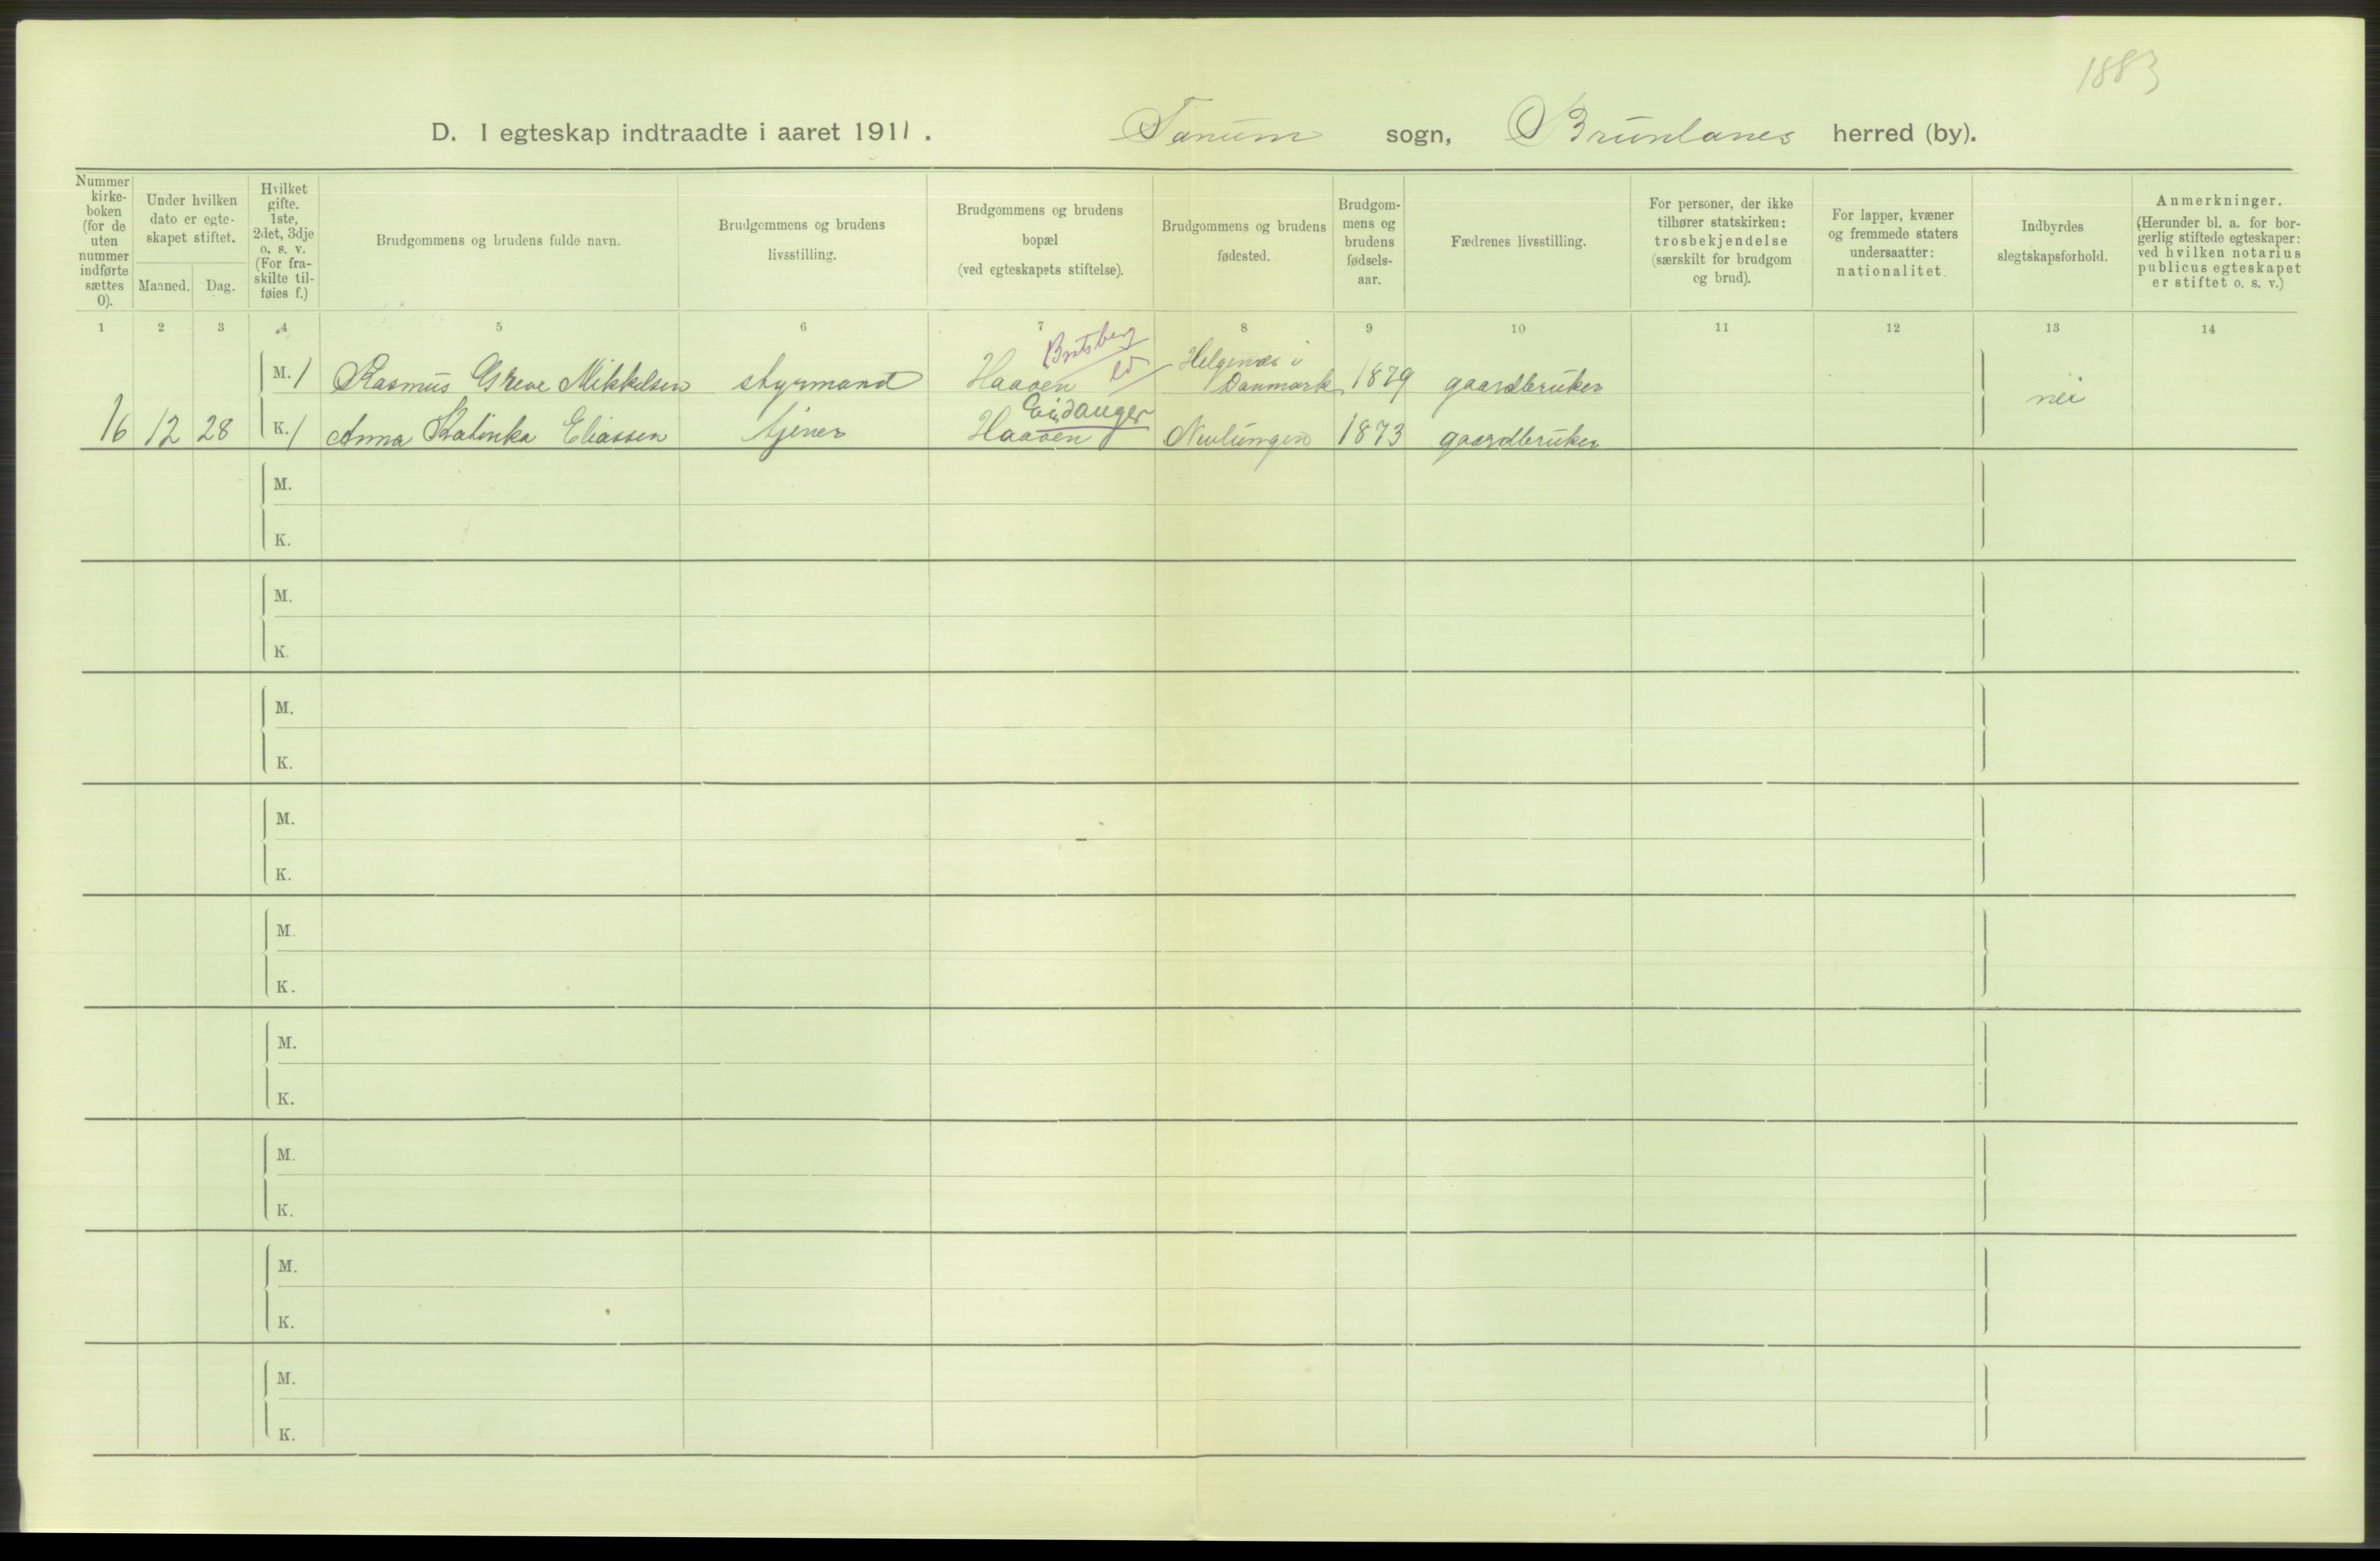 1883
D. I egteskap indtraadte i aaret 1911. Tanum sogn, Brunlanes herred (by).
Nummer kirkeboken (for de uten nummer indførte sættes 0).
Under hvilken dato er egteskapet stiftet.
Maaned. Dag.
Hvilket gifte. 1ste, 2det, 3dje o. s. v. (For fraskilte tilføies f.)
Brudgommens og brudens fulde navn.
Brudgommens og brudens livsstilling.
Brudgommens og brudens bopæl (ved egteskapets stiftelse).
Brudgommens og brudens fødested.
Brudgommens og brudens fødselsaar.
Fædrenes livsstilling.
For personer, der ikke tilhører statskirken: trosbekjendelse (særskilt for brudgom og brud).
For lapper, kvæner og fremmede staters undersaatter: nationalitet
Indbyrdes slegtskapsforhold.
Anmerkninger. (Herunder bl. a. for borgerlig stiftede egteskaper: ved hvilken notarius publicus egteskapet er stiftet o. s. v.)
1 2 3 4 5 6 7 8 9 10 11 12 13 14
Bratsberg
M. 1 Rasmus Greve Mikkelsen styrmand Haaøen Helgenæs i Danmark 1879 gaardbruker nei
Eidanger
16 12 28 K. 1 Anna Kalinka Eliassen tjener Haaøen Nevlungen 1873 gaardbruker
M.
K.
M.
K.
M.
K.
M.
K.
M.
K.
M.
K.
M.
K.
M.
K.
M.
K.